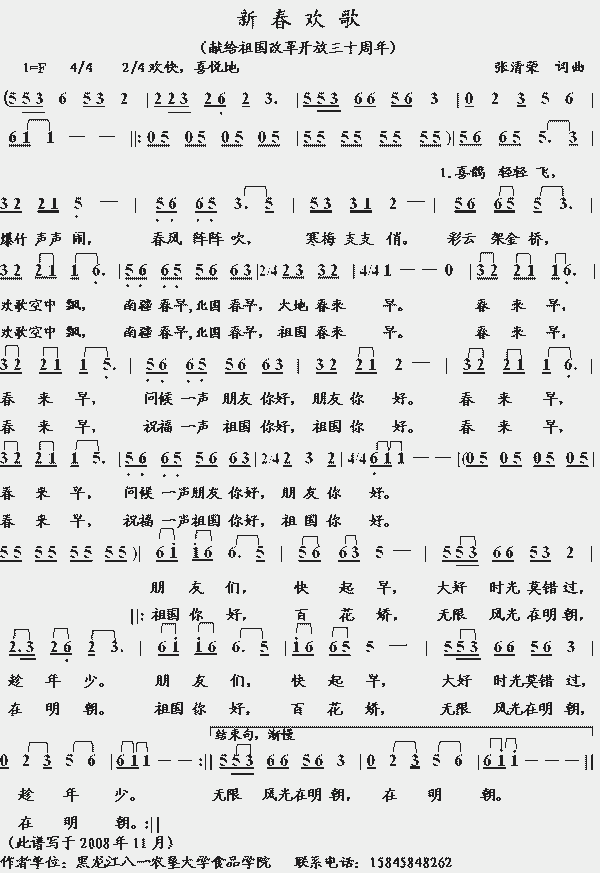 新春欢歌
（献给祖国改革开放三十周年）
1=F 4/4 2/4 欢快，喜悦地 张清荣 词曲
(5 5 3 6 5 3 2 | 2 2 3 2 6 2 3. | 5 5 3 6 6 5 6 3 | 0 2 3 5 6 |
6 1 1 — — ||: 0 5 0 5 0 5 0 5 | 5 5 5 5 5 5 5 5 ) | 5 6 6 5 5. 3 |
1.喜鹊 轻轻 飞，
3 2 2 1 5 — | 5 6 6 5 3. 5 | 5 3 3 1 2 — | 5 6 6 5 5 3. |
爆竹 声声 闹， 春风 阵阵 吹， 寒梅 支支 俏。 彩云 架金 桥，
3 2 2 1 1 6. | 5 6 6 5 5 6 6 3 | 2/4 2 3 3 2 | 4/4 1 — — 0 | 3 2 2 1 1 6. |
欢歌空中 飘， 南疆 春早，北国 春早，大地 春来 早。 春 来 早，
欢歌空中 飘， 南疆 春早，北国 春早，祖国 春来 早。 春 来 早，
3 2 2 1 1 5. | 5 6 6 5 5 6 6 3 | 3 2 2 1 2 — | 3 2 2 1 1 6. |
春 来 早， 问候 一声 朋友 你好，朋友 你 好。 春 来 早，
春 来 早， 祝福 一声 祖国 你好，祖国 你 好。 春 来 早，
3 2 2 1 1 5. | 5 6 6 5 5 6 6 3 | 2/4 2 3 2 | 4/4 6 1 1 — — |(0 5 0 5 0 5 0 5 |
春 来 早， 问候 一声朋友 你好，朋 友 你 好。
春 来 早， 祝福 一声祖国 你好，祖 国 你 好。
5 5 5 5 5 5 5 5 )| 6 i i 6 6. 5 | 5 6 6 3 5 — | 5 5 3 6 6 5 3 2 |
朋 友 们， 快 起 早， 大好 时光 莫错 过，
||: 祖国 你 好， 百 花 娇， 无限 风光 在明 朝，
2. 3 2 6 2 3. | 6 i i 6 6. 5 | i 6 6 5 5 — | 5 5 3 6 6 5 6 3 |
趁 年 少。 朋 友 们， 快 起 早， 大好 时光莫错 过，
在 明 朝。 祖国 你 好， 百 花 娇， 无限 风光在明 朝，
结束句，渐慢
0 2 3 5 6 | 6 1 1 — — :|| 5 5 3 6 6 5 6 3 | 0 2 3 5 6 | 6 i i — — — ||
趁 年 少。 无限 风光在明 朝， 在 明 朝。
在 明 朝。:||
（此谱写于2008年11月）
作者单位：黑龙江八一农垦大学食品学院 联系电话：15845848262